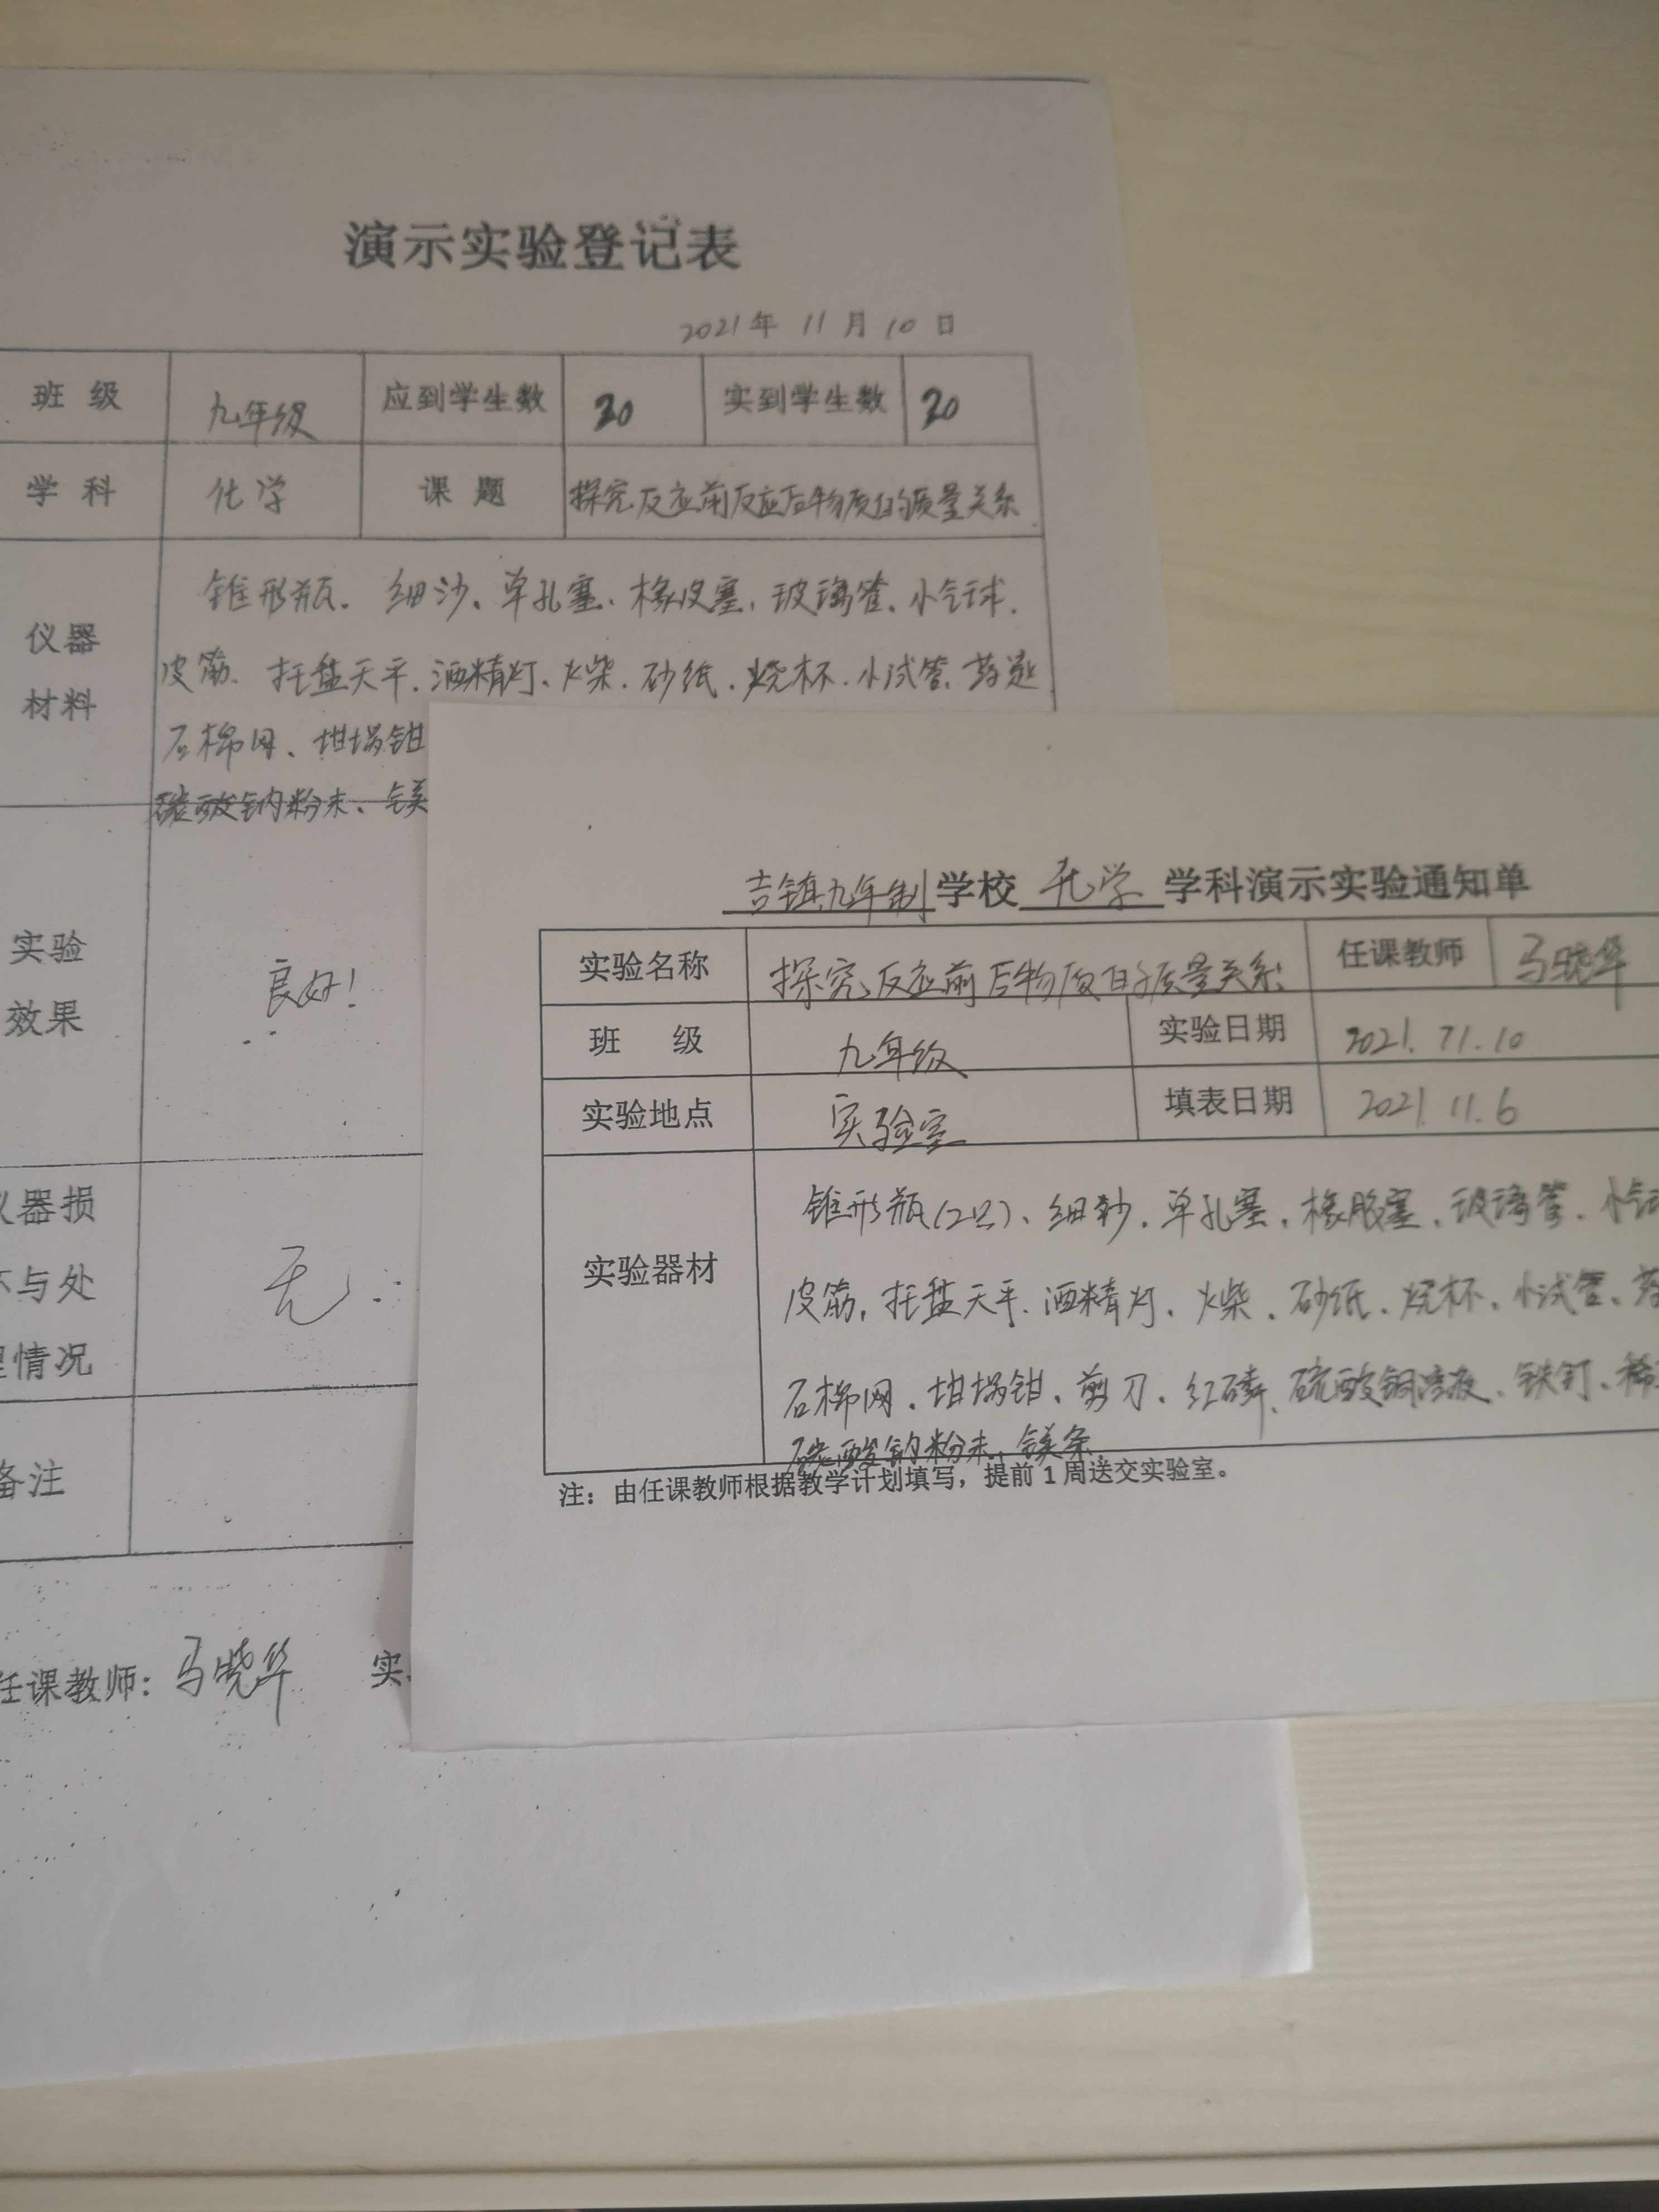 演示实验登记表
2021年 11月 10日
班 级 九年级 应到学生数 20 实到学生数 20
学 科 化学 课 题 探究反应前反应后物质的质量关系
仪器
材料
锥形瓶、细沙、单孔塞、橡皮塞、玻璃管、小气球、
皮筋、托盘天平、酒精灯、火柴、砂纸、烧杯、小试管、药匙
石棉网、坩埚钳
碳酸钠粉末、镁
实验
效果
良好!
器损
与处
情况
无
备注
任课教师: 马晓华 实
吉镇九年制学校 化学 学科演示实验通知单
实验名称 探究反应前后物质的质量关系 任课教师 马晓华
班 级 九年级 实验日期 2021.11.10
实验地点 实验室 填表日期 2021.11.6
实验器材
锥形瓶(2只)、细沙、单孔塞、橡胶塞、玻璃管、小气
皮筋、托盘天平、酒精灯、火柴、砂纸、烧杯、小试管、药
石棉网、坩埚钳、剪刀、红磷、硫酸铜溶液、铁钉、稀
碳酸钠粉末、镁条
注: 由任课教师根据教学计划填写,提前1周送交实验室。